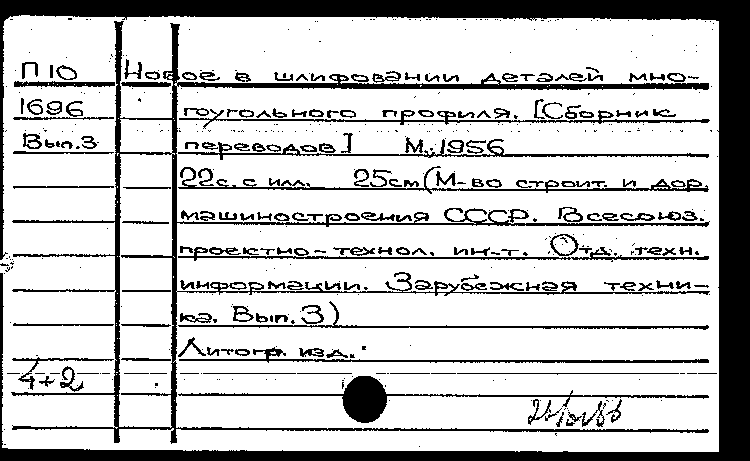 П 10 Новое в шлифовании деталей мно-
1696 гоугольного профиля. [Сборник
Вып.3 переводов] М., 1956
22с. с илл. 25см (М-во строит. и дор.
машиностроения СССР. Всесоюз.
проектно-технол. ин-т. Отд. техн.
информации. Зарубежная техни-
ка. Вып. 3)
Литогр. изд.
4+2